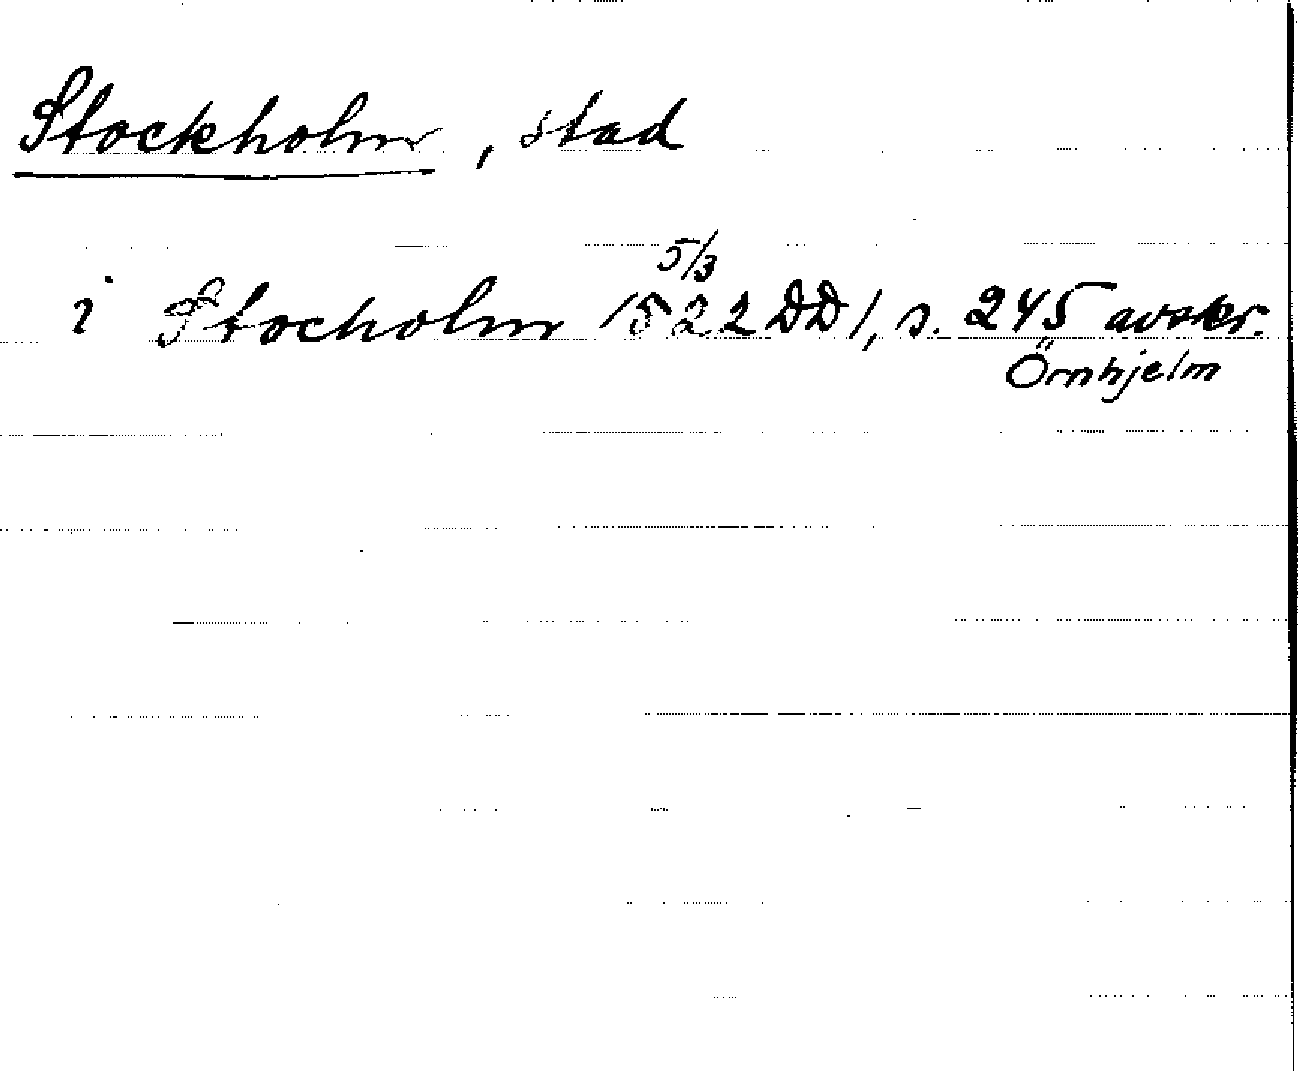 Stockholm, stad
i Stocholm 1522 5/3 DD 1, s. 245 avskr.
Örnhjelm